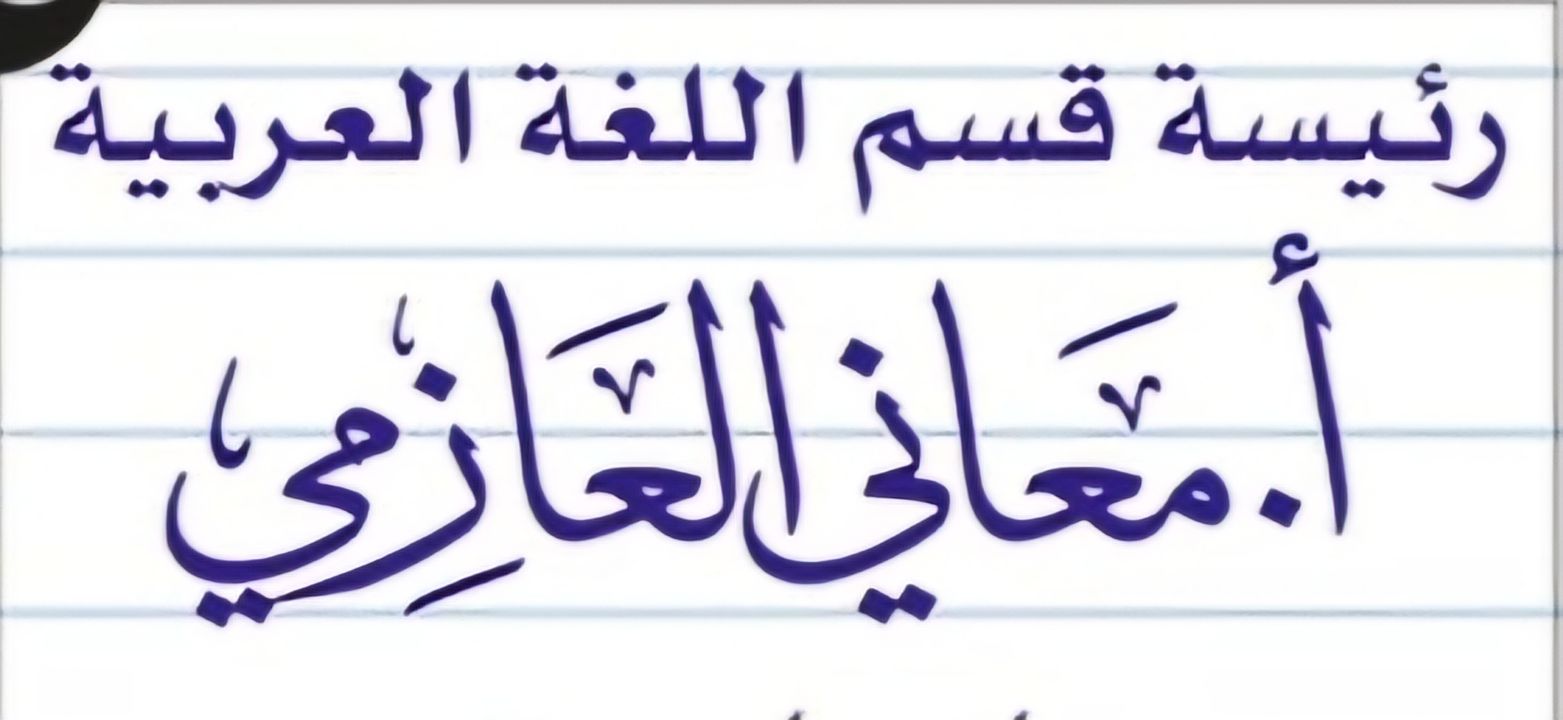 رئيسة قسم اللغة العربية
أ. معَاني العَازِمي